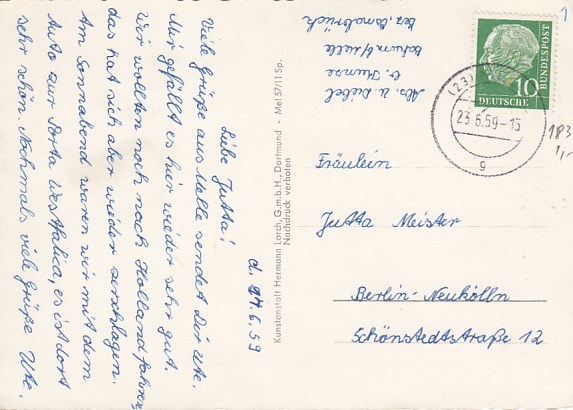 d. 24.6.59
Liebe Jutta!
Viele Grüße aus Melle sendet Dir Ute.
Mir gefällt es hier wieder sehr gut.
Wir wollten noch nach Holland fahren,
das hat sich aber wieder zerschlagen.
Am Sonnabend waren wir mit dem
Auto zur Porta Westfalica, es ist dort
sehr schön. Nochmals viele Grüße Ute.
Kunstanstalt Hermann Lorch, G.m.b.H., Dortmund • Mel 57/11 Sp.
Nachdruck verboten
Abs. U. Liebel
b.
bez. Osnabrück
DEUTSCHE
BUNDESPOST
10
(23)
23.6.59-15
g
1
183
1,-
Fräulein
Jutta Meister
Berlin-Neukölln
Schönstedtstraße 12